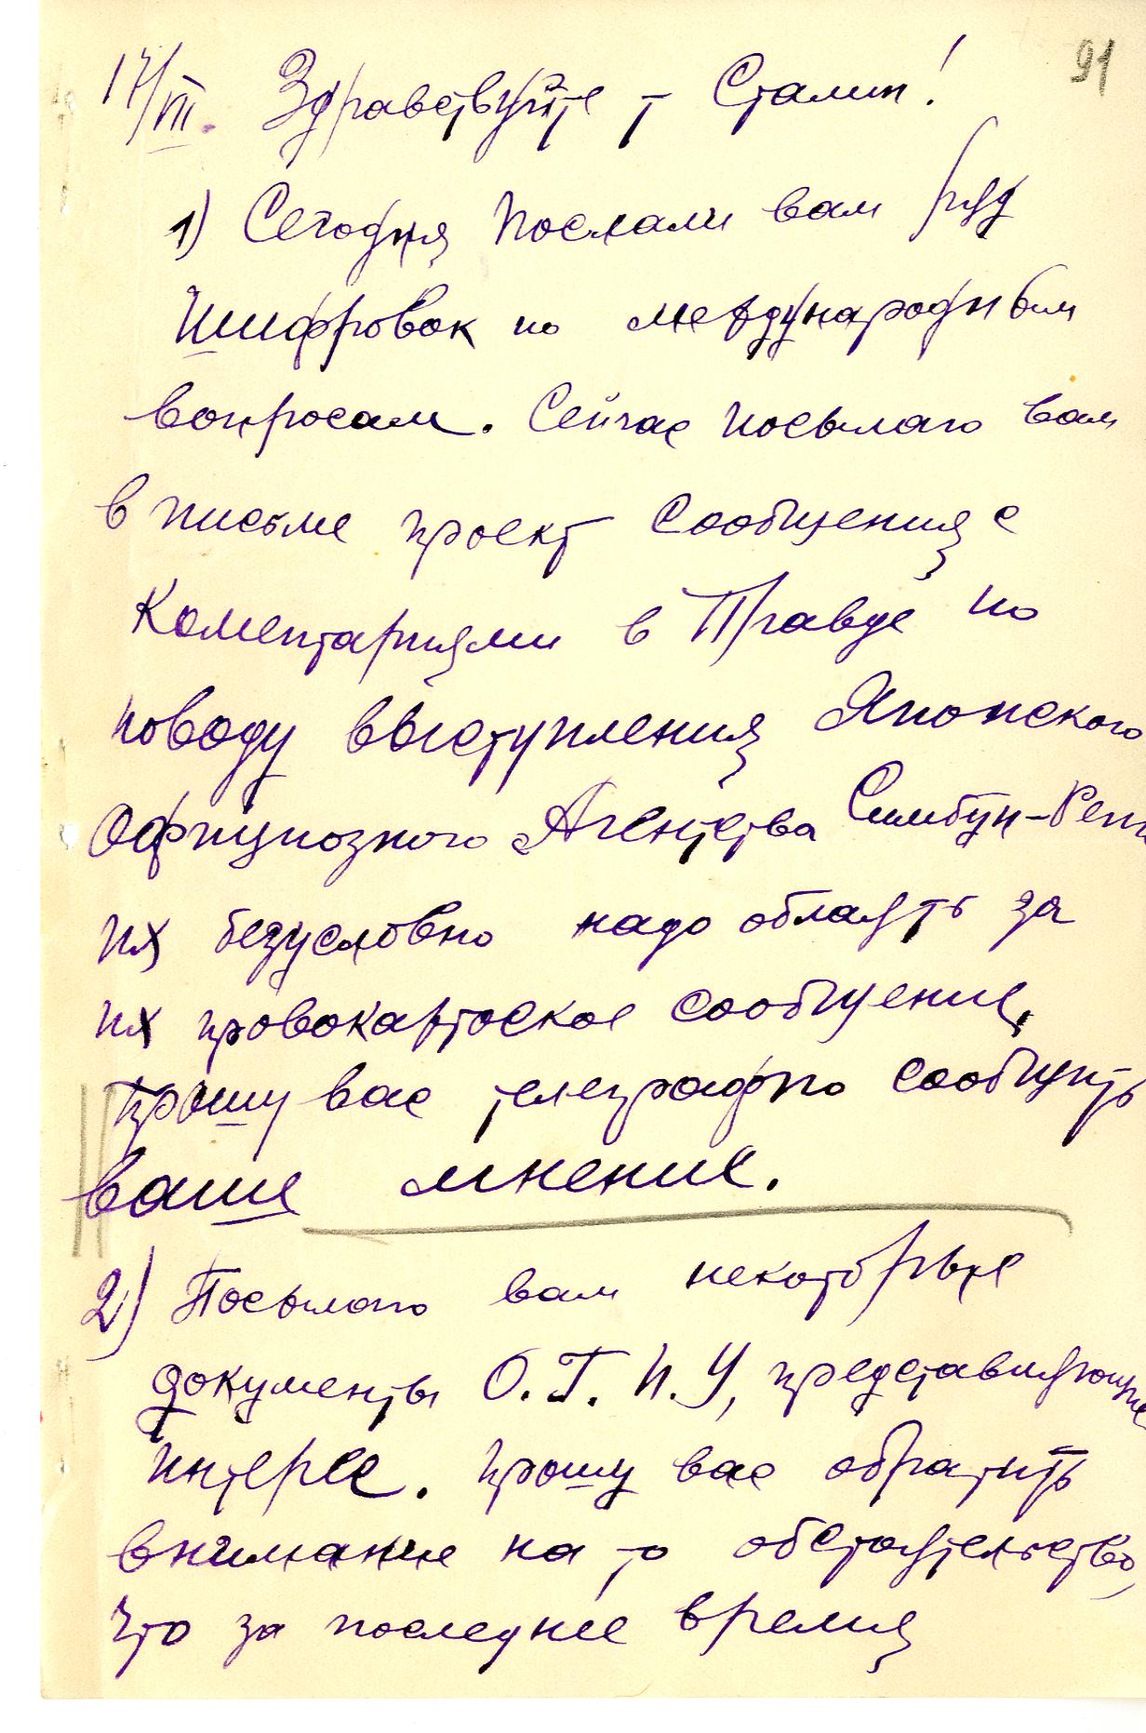 91
17/VII. Здравствуйте т Сталин!
1) Сегодня послали вам ряд
шифровок по международным
вопросам. Сейчас посылаю вам
в письме проект сообщения с
коментариями в Правде по
поводу выступления Японского
официозного Агентства Симбун-Рен
их безусловно надо облаять за
их провокаторское сообщение,
прошу вас телеграфно сообщить
ваше мнение.
2) Посылаю вам некоторые
документы О.Г.П.У, представляющие
интерес. Прошу вас обратить
внимание на то обстоятельство,
что за последнее время